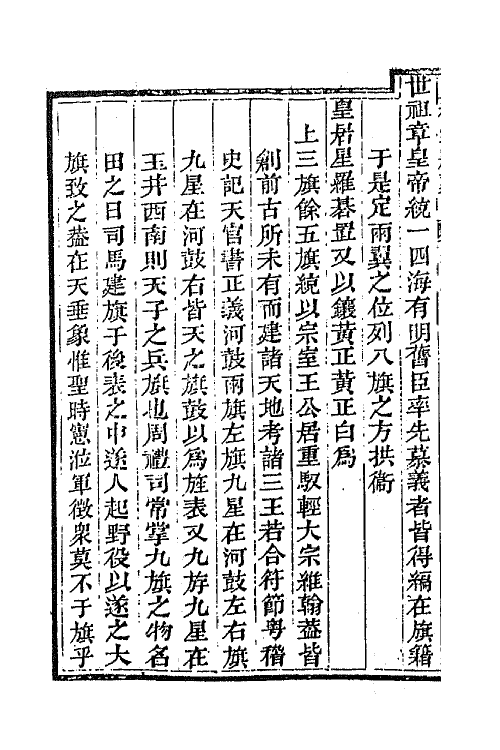 世祖章皇帝統一四海有明舊臣率先慕義者皆得編在旗籍
于是定兩翼之位列八旗之方拱衞
皇居星羅棊置又以鑲黃正黃正白爲
上三旗餘五旗統以宗室王公居重馭輕大宗維翰葢皆
創前古所未有而建諸天地考諸三王若合符節粤稽
史記天官書正義河鼓兩旗左旗九星在河鼓左右旗
九星在河鼓右皆天之旗鼓以爲旌表又九斿九星在
玉井西南則天子之兵旗也周禮司常掌九旗之物名
田之日司馬建旗于後表之中遂人起野役以遂之大
旗致之葢在天垂象惟聖時憲涖軍徵衆莫不于旗乎